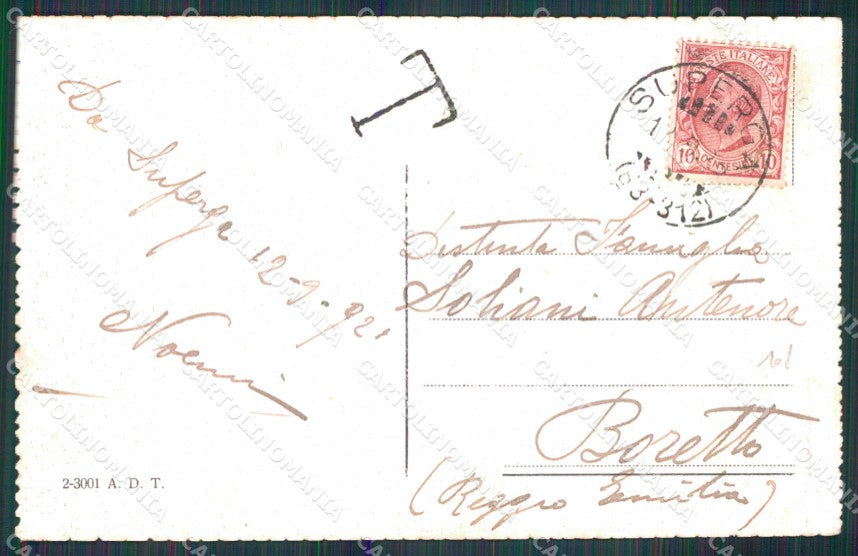 Da Superga 12-9-921
Noemi
2-3001 A. D. T.
T
POSTE ITALIANE
10 CENTESIMI 10
SUPERGA
(63-312)
Distinta Famiglia
Soliani Antenore
Boretto
(Reggio Emilia)
CARTOLINOMANIA